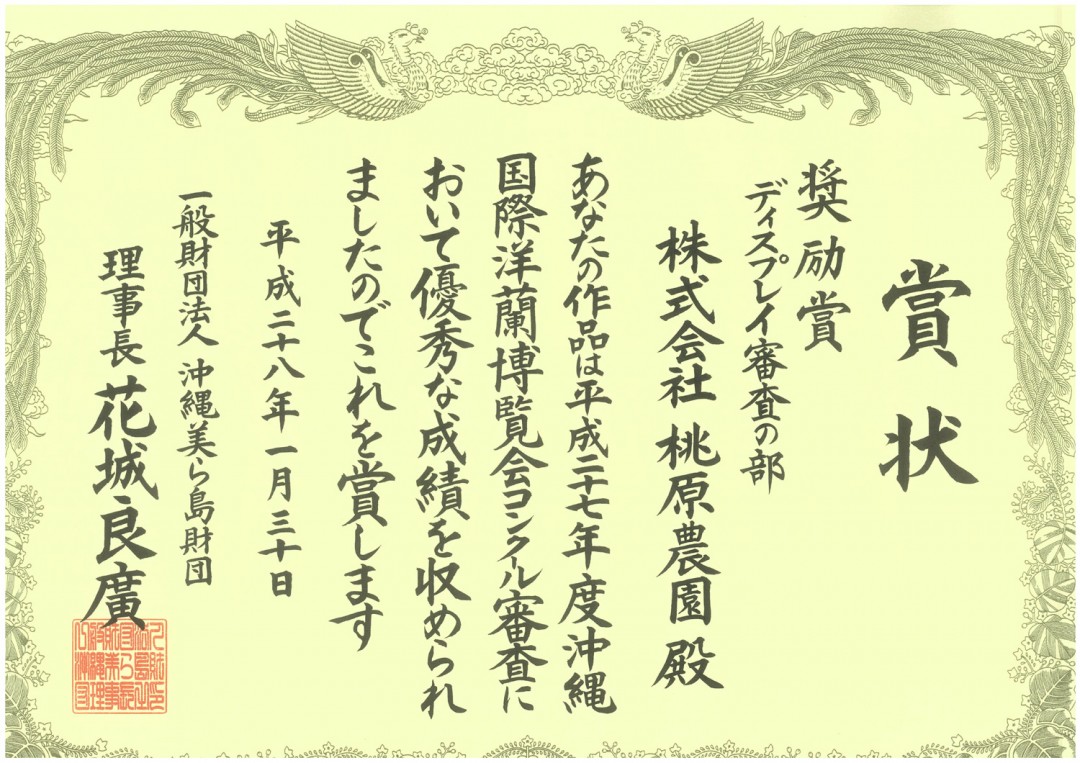 賞状
奨励賞
ディスプレイ審査の部
株式会社 桃原農園 殿
あなたの作品は平成二十七年度沖縄
国際洋蘭博覧会コンクール審査に
おいて優秀な成績を収められ
ましたのでこれを賞します
平成二十八年一月三十日
一般財団法人 沖縄美ら島財団
理事長 花城良廣